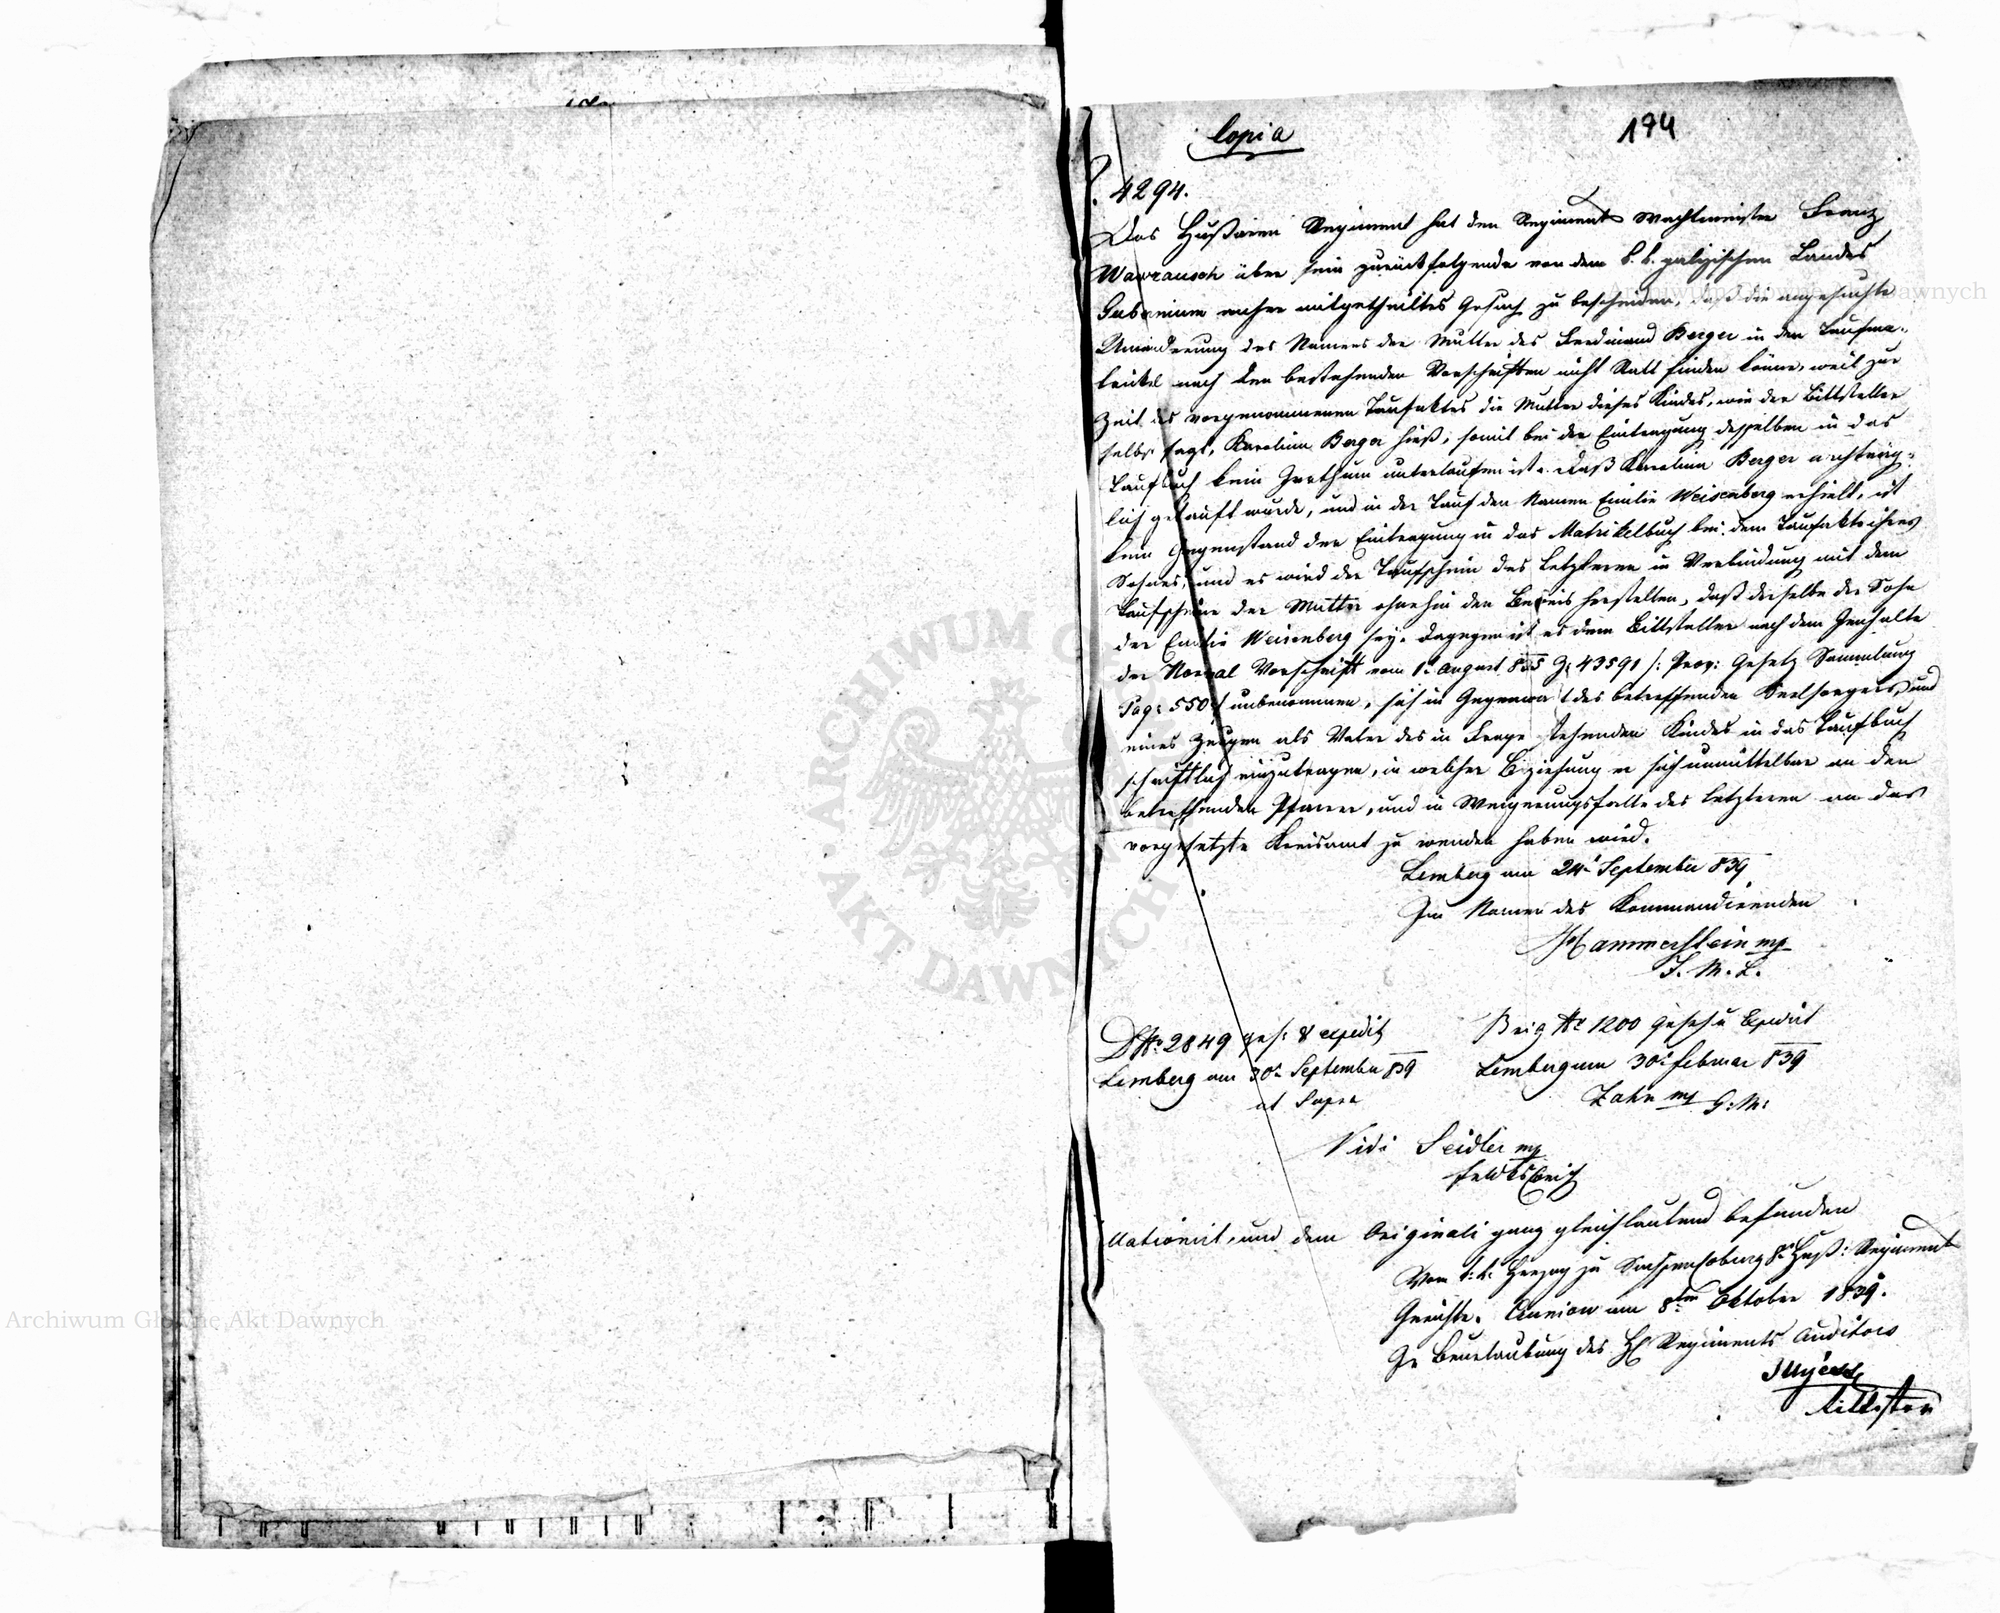 Copia
194
4294.
Das Hußaren Regiment hat den Regiments Wachtmeister Franz
Wawrausch über sein zurückfolgendes von dem k. k. galizischen Landes
Gubernium anher mitgetheiltes Gesuch zu bescheiden, daß die angesuchte
Umänderung des Namens der Mutter des Ferdinand Berger in der Taufma-
trickel nach den bestehenden Vorschriften nicht Statt finden könne, weil zur
Zeit des vorgenommenen Taufaktes die Mutter dieses Kindes, wie der Bittsteller
selbst sagt, Karolina Berger hieß, somit bei der Eintragung desselben in das
Taufbuch kein Irrthum unterlaufen ist. Daß Karolina Berger nachträg-
lich getauft wurde, und in der Tauf den Namen Emilie Weisenberg erhielt, ist
kein Gegenstand der Eintragung in das Matrikelbuch bei dem Taufakte ihres
Sohnes, und es wird der Taufschein des Letzteren in Verbindung mit dem
Taufscheine der Mutter ohnehin den Beweis herstellen, daß derselbe der Sohn
der Emilie Weisenberg sey. Dagegen ist es dem Bittsteller nach dem Inhalte
der Normal Vorschrift vom 1t August 835 Z: 43591 /: Prov: Gesetz Sammlung
Pag: 550 :/ unbenommen, sich in Gegenwart des betreffenden Seelsorgers und
eines Zeugen als Vater des in Frage stehenden Kindes in das Taufbuch
schriftlich einzutragen, in welcher Beziehung er sich unmittelbar an den
betreffenden Pfarrer, und in Weigerungsfalle des Letzteren an das
vorgesetzte Kreisamt zu wenden haben wird.
Lemberg am 24t September 839
Im Namen des Kommandierenden
Hammerstein mp
F. M. L.
D No 2849 ges: & expedit
Lemberg am 30t September 839
ut Supra
Brig No 1200 Geseh u Expedirt
Lemberg am 30t Februar 839
Zahn mp G: M:
Vidi Seidler mp
Feldkr
llationirt, und dem Originali ganz gleichlautend befunden
Vom k: k: Herzog zu Sachsen Coburg 8t Huß: Regiments
Gerichte. am 8ten Oktober 1839.
In Beurlaubung des H Regiments Auditors
Rittmster